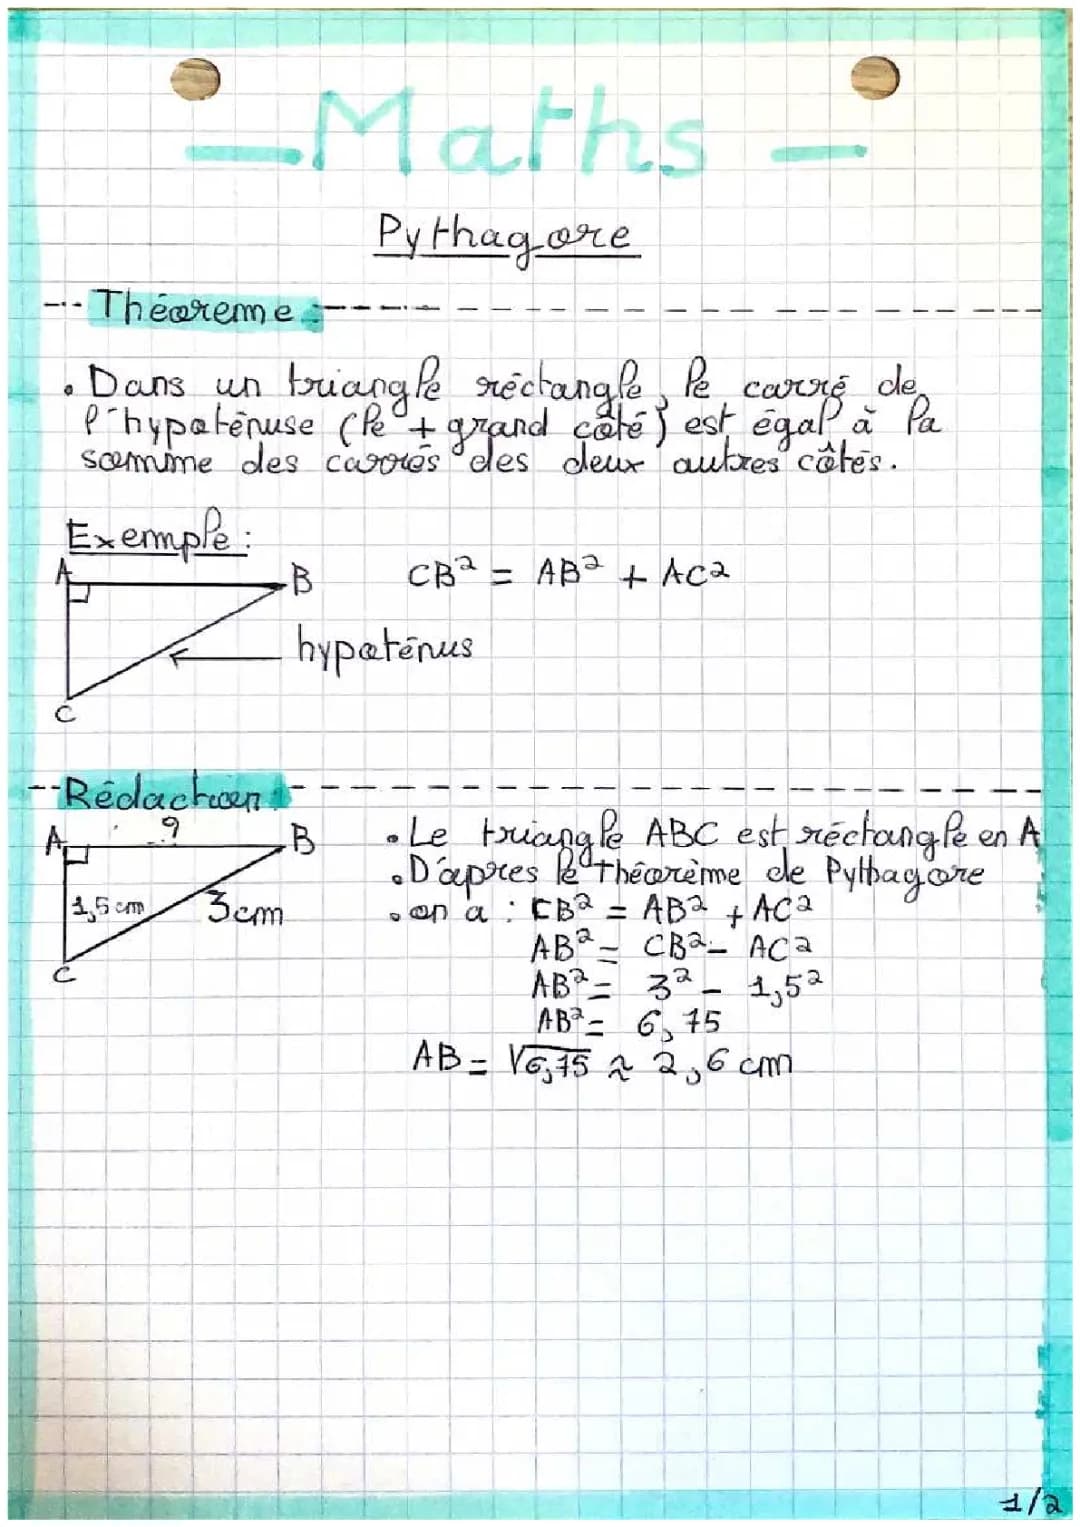 - Maths -
Pythagore
Théoreme :
• Dans un triangle réctangle, le carré de
l'hypoténuse (le + grand côté) est égal à la
somme des carrés des deux autres côtés.
Exemple :
A B CB² = AB² + AC²
hypoténus
C
Rédaction :
A ? B • Le triangle ABC est réctangle en A
• D'apres le théorème de Pythagore
1,5 cm 3cm • on a : CB² = AB² + AC²
C AB² = CB² - AC²
AB² = 3² - 1,5²
AB² = 6,75
AB = √6,75 ≈ 2,6 cm
1/2